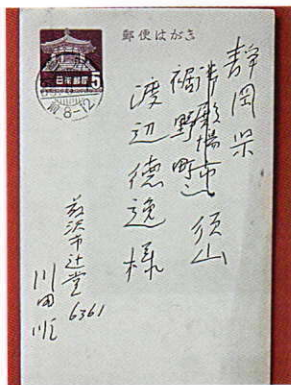 郵便はがき
日本郵便
5
前8-12
静岡県
御殿場市
裾野町 須山
渡辺徳逸様
藤沢市辻堂
6361
川田順